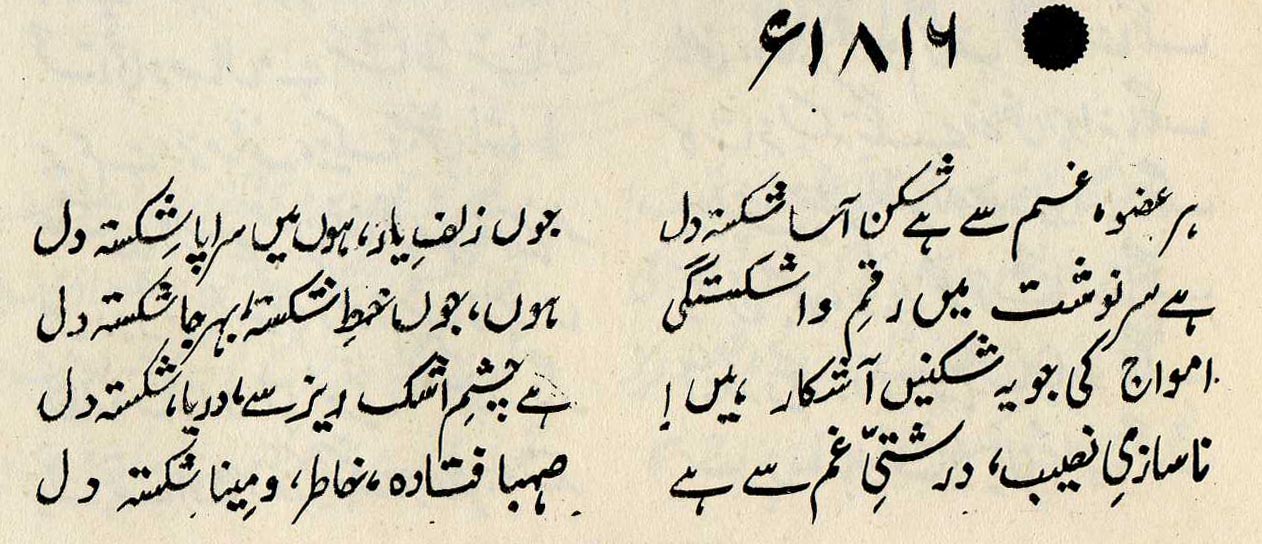 ۱۸۱۶ء
ہر عضو، غم سے ہے شکن آسا شکستہ دل جوں زلفِ یار، ہوں میں سراپا شکستہ دل
ہے سرنوشت میں رقمِ وا شکستگی ہوں، جوں خطِ شکستہ، بہر جا شکستہ دل
امواج کی جو یہ شکنیں آشکار ہیں! ہے چشمِ اشک ریز سے، دریا، شکستہ دل
ناسازیِ نصیب، درشتیِ غم سے ہے صہبا فتادہ، خاطر، و مینا شکستہ دل